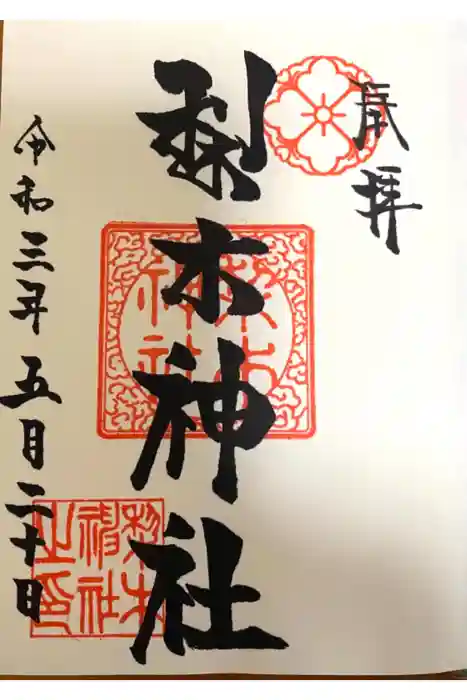 奉拝
梨木神社
令和三年五月二十日
梨木
神社
梨木
神社
之印